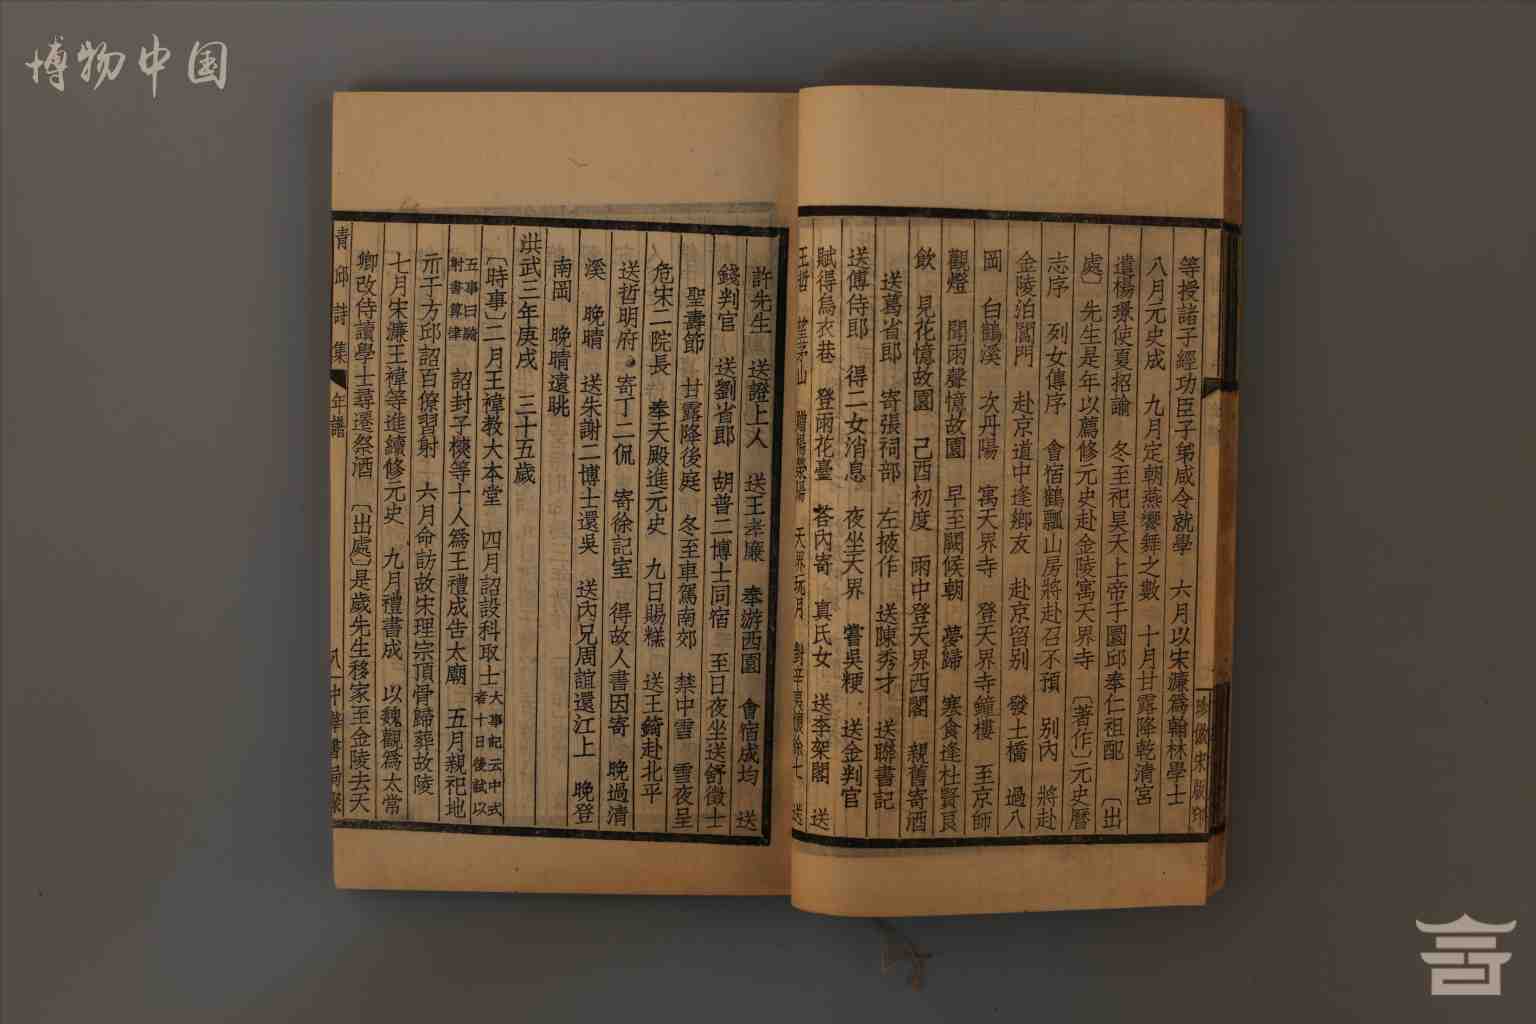 博物中国
等授諸子經功臣子弟咸令就學 六月以宋濂爲翰林學士
八月元史成 九月定朝燕饗舞之數 十月甘露降乾清宮
遣楊璟使夏招諭 冬至祀昊天上帝于圜邱奉仁祖配 〔出
處〕先生是年以薦修元史赴金陵寓天界寺 〔著作〕元史曆
志序 列女傳序 會宿鶴瓢山房將赴召不預 别內 將赴
金陵泊閶門 赴京道中逢鄉友 赴京留别 發土橋 過八
岡 白鶴溪 次丹陽 寓天界寺 登天界寺鐘樓 至京師
觀燈 聞雨聲憶故園 早至闕候朝 夢歸 寒食逢杜賢良
飲 見花憶故園 己酉初度 雨中登天界西閣 親舊寄酒
送葛省郎 寄張祠部 左掖作 送陳秀才 送聯書記
送傅侍郎 得二女消息 夜坐天界 嘗吳粳 送金判官
賦得烏衣巷 登雨花臺 荅內寄 真氏女 送李架閣 送
許先生 送證上人 送王孝廉 奉游西園 會宿成均 送
錢判官 送劉省郎 胡普二博士同宿 至日夜坐送舒徵士
聖壽節 甘露降後庭 冬至車駕南郊 禁中雪 雪夜呈
危宋二院長 奉天殿進元史 九日賜糕 送王錡赴北平
送哲明府 寄丁二侃 寄徐記室 得故人書因寄 晚過清
溪 晚晴 送朱謝二博士還吳 送內兄周誼還江上 晚登
南岡 晚晴遠眺
洪武三年庚戌 三十五歲
〔時事〕二月王禕教大本堂 四月詔設科取士大事記云中式者十日後試以
五事曰騎射書算律 詔封子樉等十人爲王禮成告太廟 五月親祀地
示于方邱詔百僚習射 六月命訪故宋理宗頂骨歸葬故陵
七月宋濂王禕等進續修元史 九月禮書成 以魏觀爲太常
卿改侍讀學士尋遷祭酒 〔出處〕是歲先生移家至金陵去天
青邱詩集 年譜 八 中華書局聚